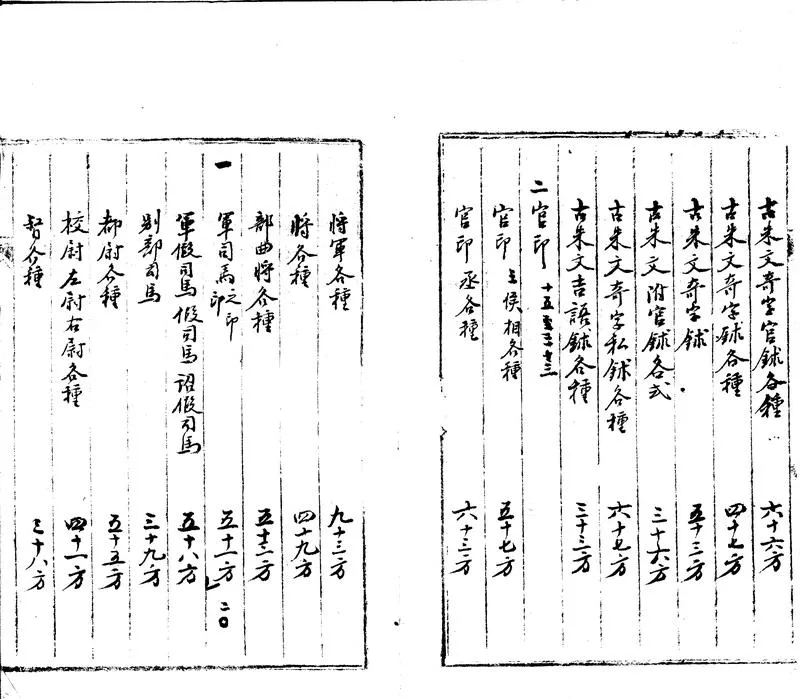 古朱文奇字官鉨各種 六十六方
古朱文奇字鉨各種 四十七方
古朱文奇字鉨 五十三方
古朱文附官鉨各式 三十六方
古朱文奇字私鉨各種 六十七方
古朱文吉語鉨各種 三十三方
二 官印 十五至二十三
官印 王侯相各種 五十七方
官印 丞各種 六十三方
將軍各種 九十三方
將各種 四十九方
部曲將各種 五十二方
一 軍司馬之印 印 五十一方 二〇
軍假司馬 假司馬 詔假司馬 五十八方
別部司馬 三十九方
都尉各種 五十五方
校尉左尉右尉各種 四十一方
督各種 三十八方